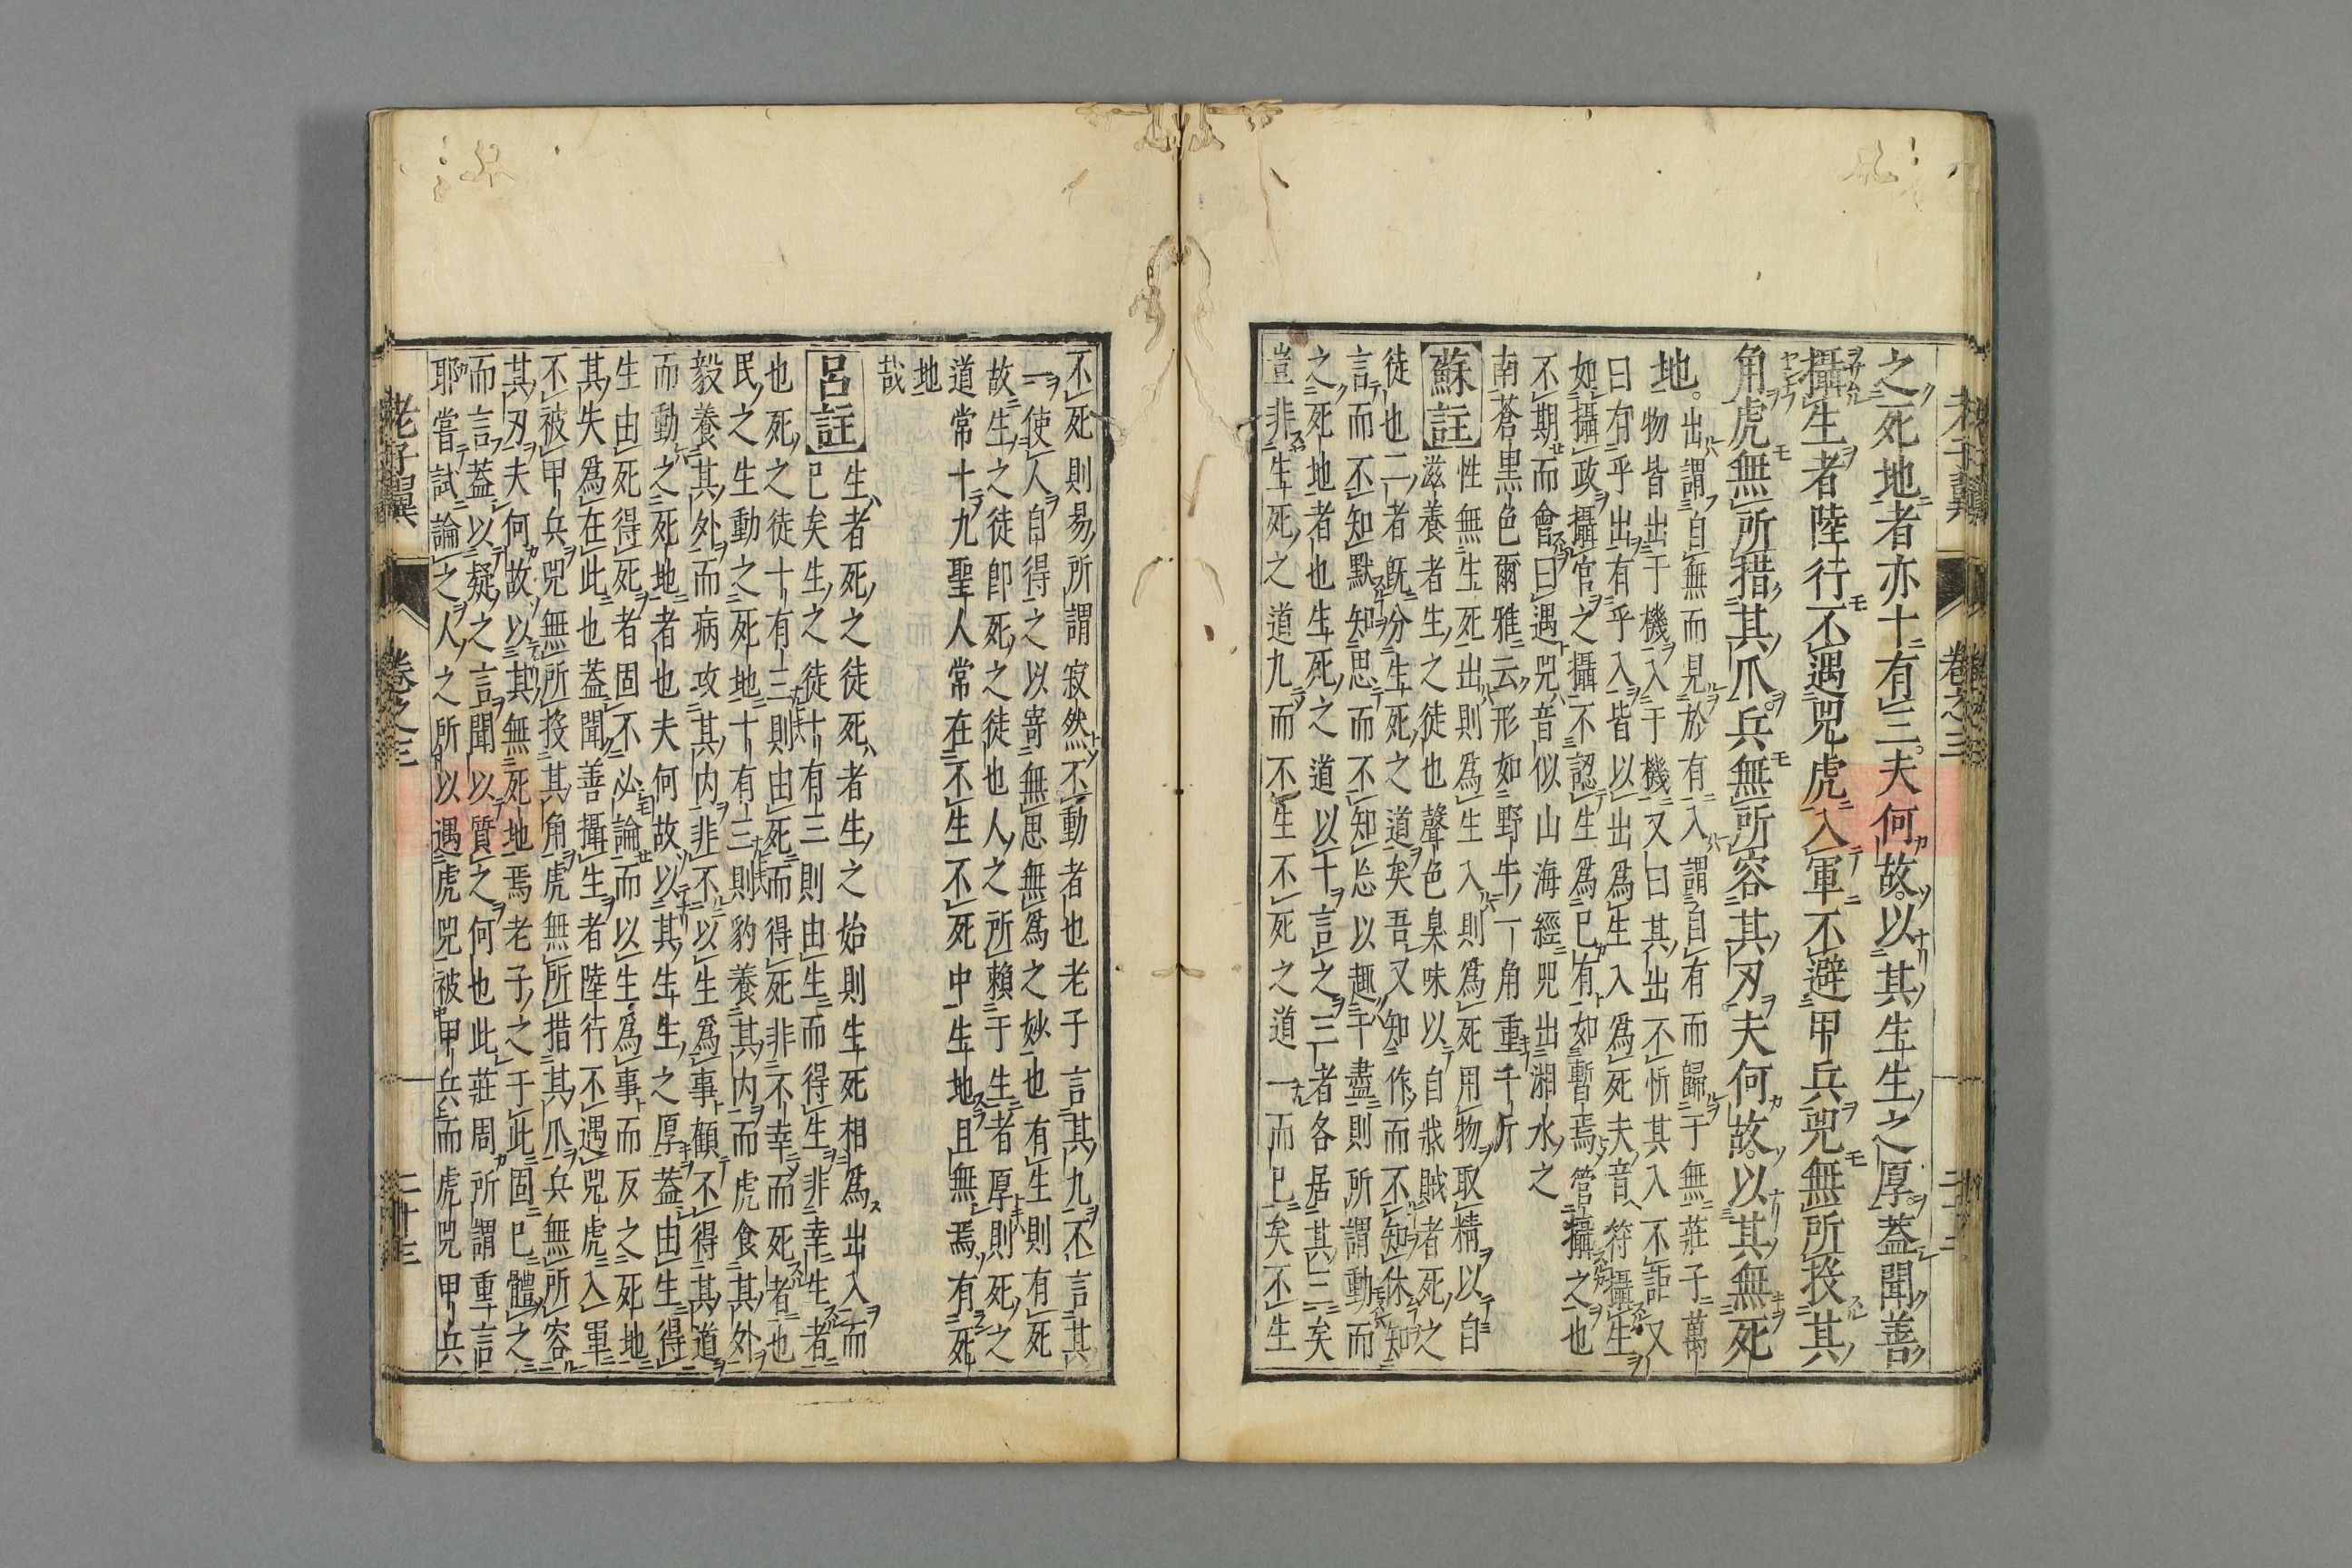 之死地者亦十有三。夫何故。以其生生之厚。蓋聞善
攝生者陸行不遇兕虎入軍不避甲兵兕無所投其
角虎無所措其爪。兵無所容其刃。夫何故。以其無死
地。出謂自無而見於有入謂自有而歸于無莊子萬
物皆出于機入于機又曰其出不忻其入不詎又
曰有乎出有乎入皆以出為生入為死夫音符攝生
如攝政攝官之攝不認生為己有如暫焉管攝之也
不期而會曰遇兕音似山海經兕出湘水之
南蒼黒色爾雅云形如野牛一角重千斤
蘇註 性無生死出則為生入則為死用物取精以自
滋養者生之徒也聲色臭味以自戕賊者死之
徒也二者既分生死之道矣吾又知作而不知休知
言而不知默知思而不知忘以趣于盡則所謂動而
之死地者也生死之道以十言之三者各居其三矣
豈非生死之道九而不生不死之道一而已矣不生
不死則易所謂寂然不動者也老子言其九不言其
一使人自得之以寄無思無為之妙也有生則有死
故生之徒即死之徒也人之所賴于生者厚則死之
道常十九聖人常在不生不死中生地且無焉有死
地
哉
呂註 生者死之徒死者生之始則生死相為出入而
已矣生之徒十有三則由生而得生非幸生者
也死之徒十有三則由死而得死非不幸而死者也
民之生動之死地十有三則豹養其内而虎食其外
毅養其外而病攻其内非不以生為事顧不得其道
而動之死地者也夫何故以其生生之厚蓋由生得
生由死得死者固不必論而以生為事而反之死地
其失為在此也蓋聞善攝生者陸行不遇兕虎入軍
不被甲兵兕無所投其角虎無所措其爪兵無所容
其刃夫何故以其無死地焉老子之于此固已體之
而言蓋以疑之言聞以質之何也此莊周所謂重言
耶嘗試論之人之所以遇虎兕被甲兵而虎兕甲兵
老子翼 卷之三 二十三